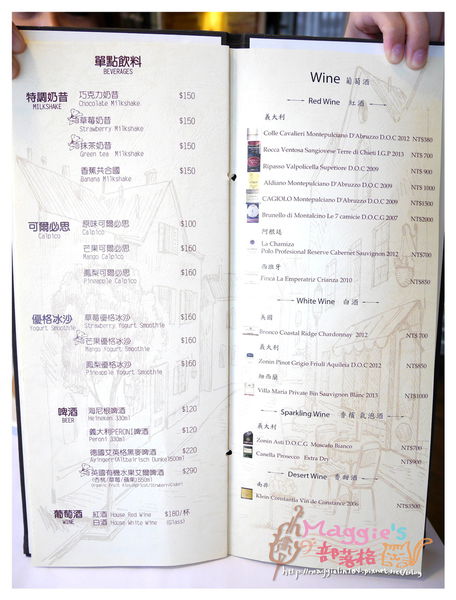 單點飲料
BEVERAGES
特調奶昔
MILKSHAKE
巧克力奶昔 $150
Chocolate Milkshake
草莓奶昔 $150
Strawberry Milkshake
抹茶奶昔 $150
Green tea Milkshake
香蕉共合國 $150
Banana Milkshake
可爾必思
Calpico
原味可爾必思 $100
Calpico
芒果可爾必思 $160
Mango Calpico
鳳梨可爾必思 $160
Pineapple Calpico
優格冰沙
Yogurt Smoothie
草莓優格冰沙 $160
Strawberry Yogurt Smoothie
芒果優格冰沙 $160
Mango Yogurt Smoothie
鳳梨優格冰沙 $160
Pineapple Yogurt Smoothie
啤酒
BEER
海尼根啤酒 $120
Heineken 330ml
義大利PERONI啤酒 $120
Peroni 330ml
德國艾英格黑麥啤酒 $220
Ayinger(Altbairisch Dunkel500ml)
英國有機水果艾爾啤酒 $290
(杏桃/草莓/蘋果)
葡萄酒
WINE
紅酒 House Red Wine $180/杯
白酒 House White Wine (Glass)
Wine 葡萄酒
Red Wine 紅酒
義大利
Colle Cavalieri Montepulciano D'Abruzzo D.O.C 2012 NT$580
Rocca Ventosa Sangiovese Terre di Chieti I.G.P 2013 NT$700
Ripasso Valpolicella Superiore D.O.C 2009 NT$ 900
Aldiano Montepulciano D'Abruzzo D.O.C 2009 NT$ 1000
CAGIOLO Montepulciano D'Abruzzo D.O.C 2009 NT$1500
Brunello di Montalcino Le 7 camicie D.O.C.G 2007 NT$2000
阿根廷
La Chamiza
Polo Profesional Reserve Cabernet Sauvignon 2012 NT$700
西班牙
Finca La Emperatriz Crianza 2010 NT$850
White Wine 白酒
美國
Bronco Coastal Ridge Chardonnay 2012 NT$ 700
義大利
Zonin Pinot Grigio Friuli Aquileia D.O.C 2012 NT$850
紐西蘭
Villa Maria Private Bin Sauvignon Blanc 2013 NT$1000
Sparkling Wine 香檳 氣泡酒
義大利
Zonin Asti D.O.C.G Moscato Bianco NT$700
Canella Prosecco Extra Dry NT$900
Desert Wine 香甜酒
南非
Klein Constantia Vin de Constance 2006 NT$3500
Maggie's
部落格